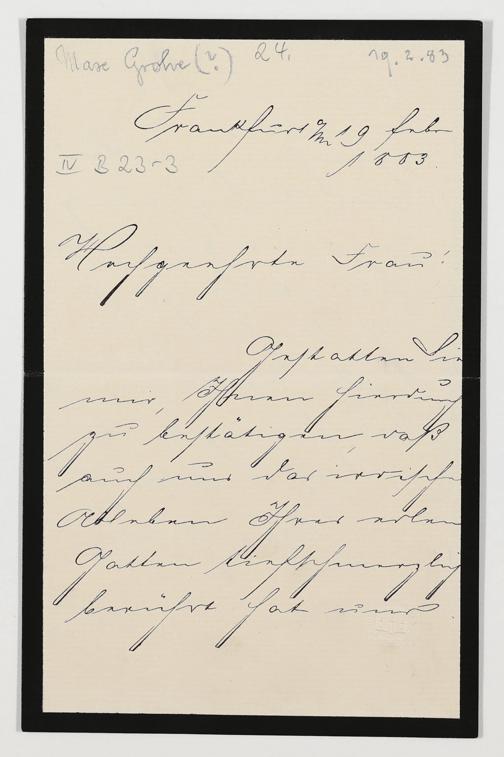 Max Grohe (?) 24. 19.2.83
Frankfurt a/M 19 Febr
1883.
IV B 23-3
Hochgeehrte Frau!
Gestatten Sie
mir, Ihnen hierdurch
zu bestätigen, daß
auch uns das irdische
Ableben Ihres edlen
Gatten tiefschmerzlich
berührt hat und